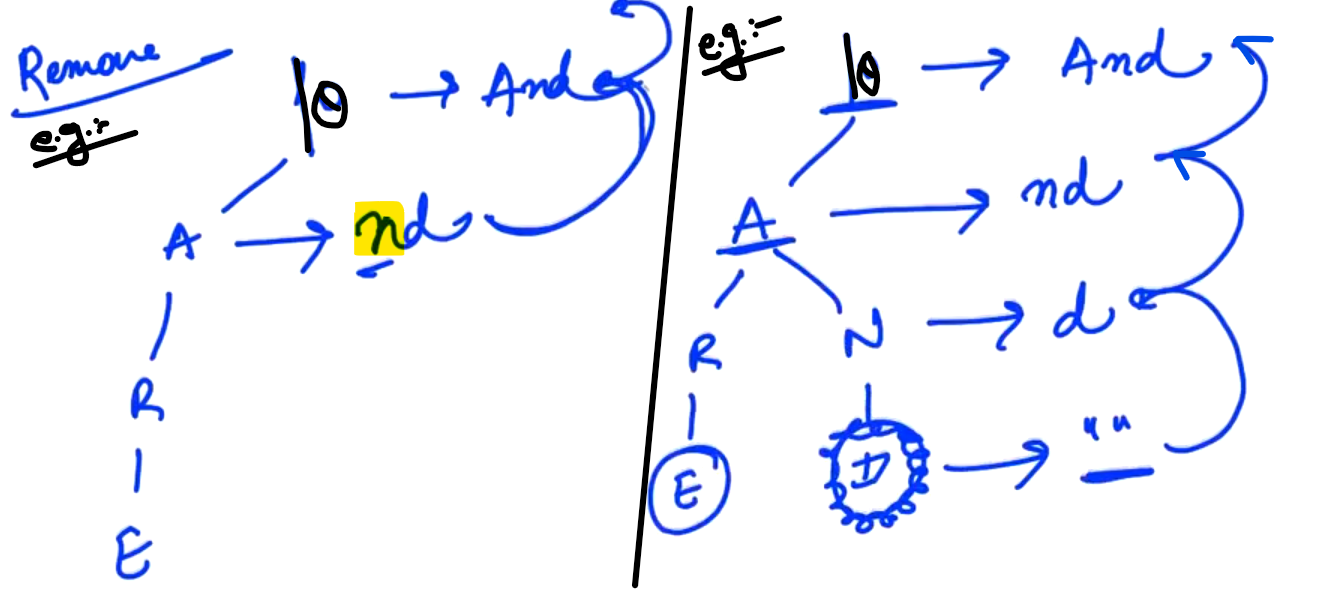 Remove
e.g.:
\0 → And
A → nd
R
E
e.g.:-
\0 → And
A → nd
R N → d
E D → ""